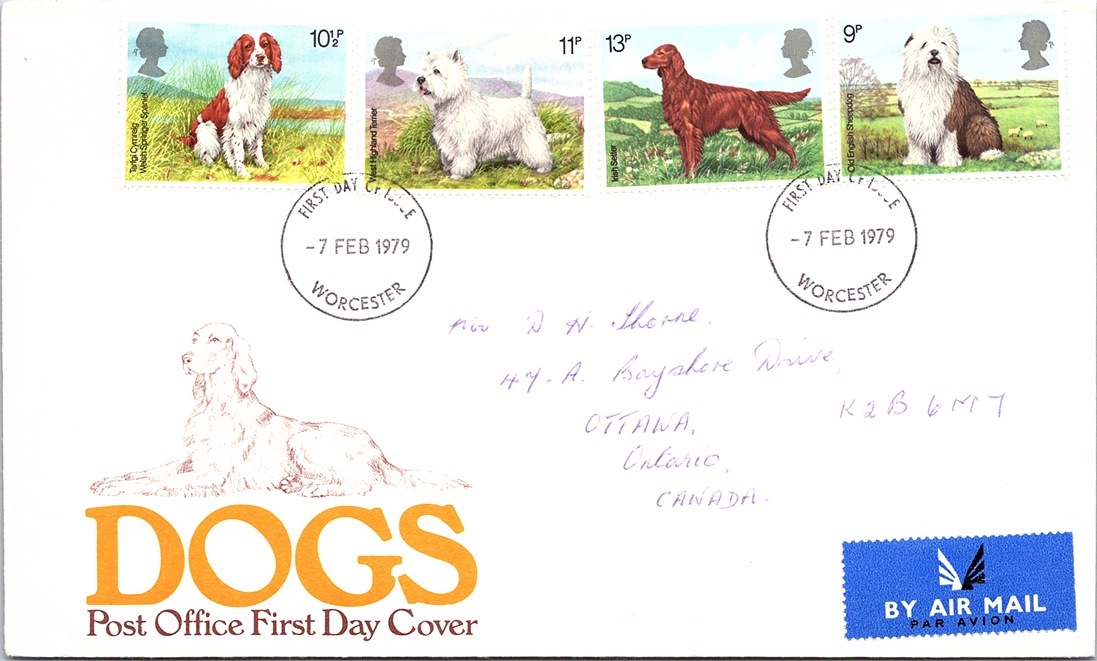 10½P
Tarfgi Cymreig
Welsh Springer Spaniel
11P
West Highland Terrier
13P
Irish Setter
9P
Old English Sheepdog
FIRST DAY OF ISSUE
-7 FEB 1979
WORCESTER
FIRST DAY OF ISSUE
-7 FEB 1979
WORCESTER
D H. Thorne.
47-A. Bayshore Drive,
OTTAWA,
K2B 6M7
Ontario,
CANADA-
DOGS
Post Office First Day Cover
BY AIR MAIL
PAR AVION